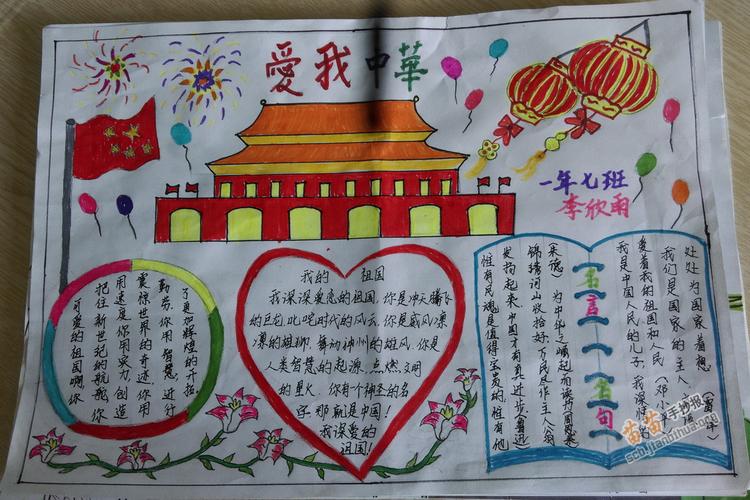 愛我中華
一年七班
李欣雨
了更加辉煌的开拓
勤劳,你用智慧,进行
震惊世界的奇迹,你用
用速度,你用实力,创造
把住新世纪的航舵,你
可爱的祖国啊,你
我的 祖国
我深深爱恋的祖国.你是冲天腾飞
的巨龙,叱咤时代的风云,你是威风凛
凛的,舞动神州的雄风,你是
人类智慧的起源,点燃文明
的星火.你有一个神圣的名
字那就是中国!
我深爱的
祖国!
处处为国家着想
我们是国家的主人
爱着我的祖国和人民(邓小平)
我是中国人民的儿子,我深情的
名言名句
(朱德) 为中华之崛起而读书(周恩来)
锦绣河山收拾好,万民尽作主人翁
发扬起来,中国才有真进步(鲁迅)
惟有民魂是值得宝贵的,惟有他
苗苗手抄报
scb.jianbihua.org